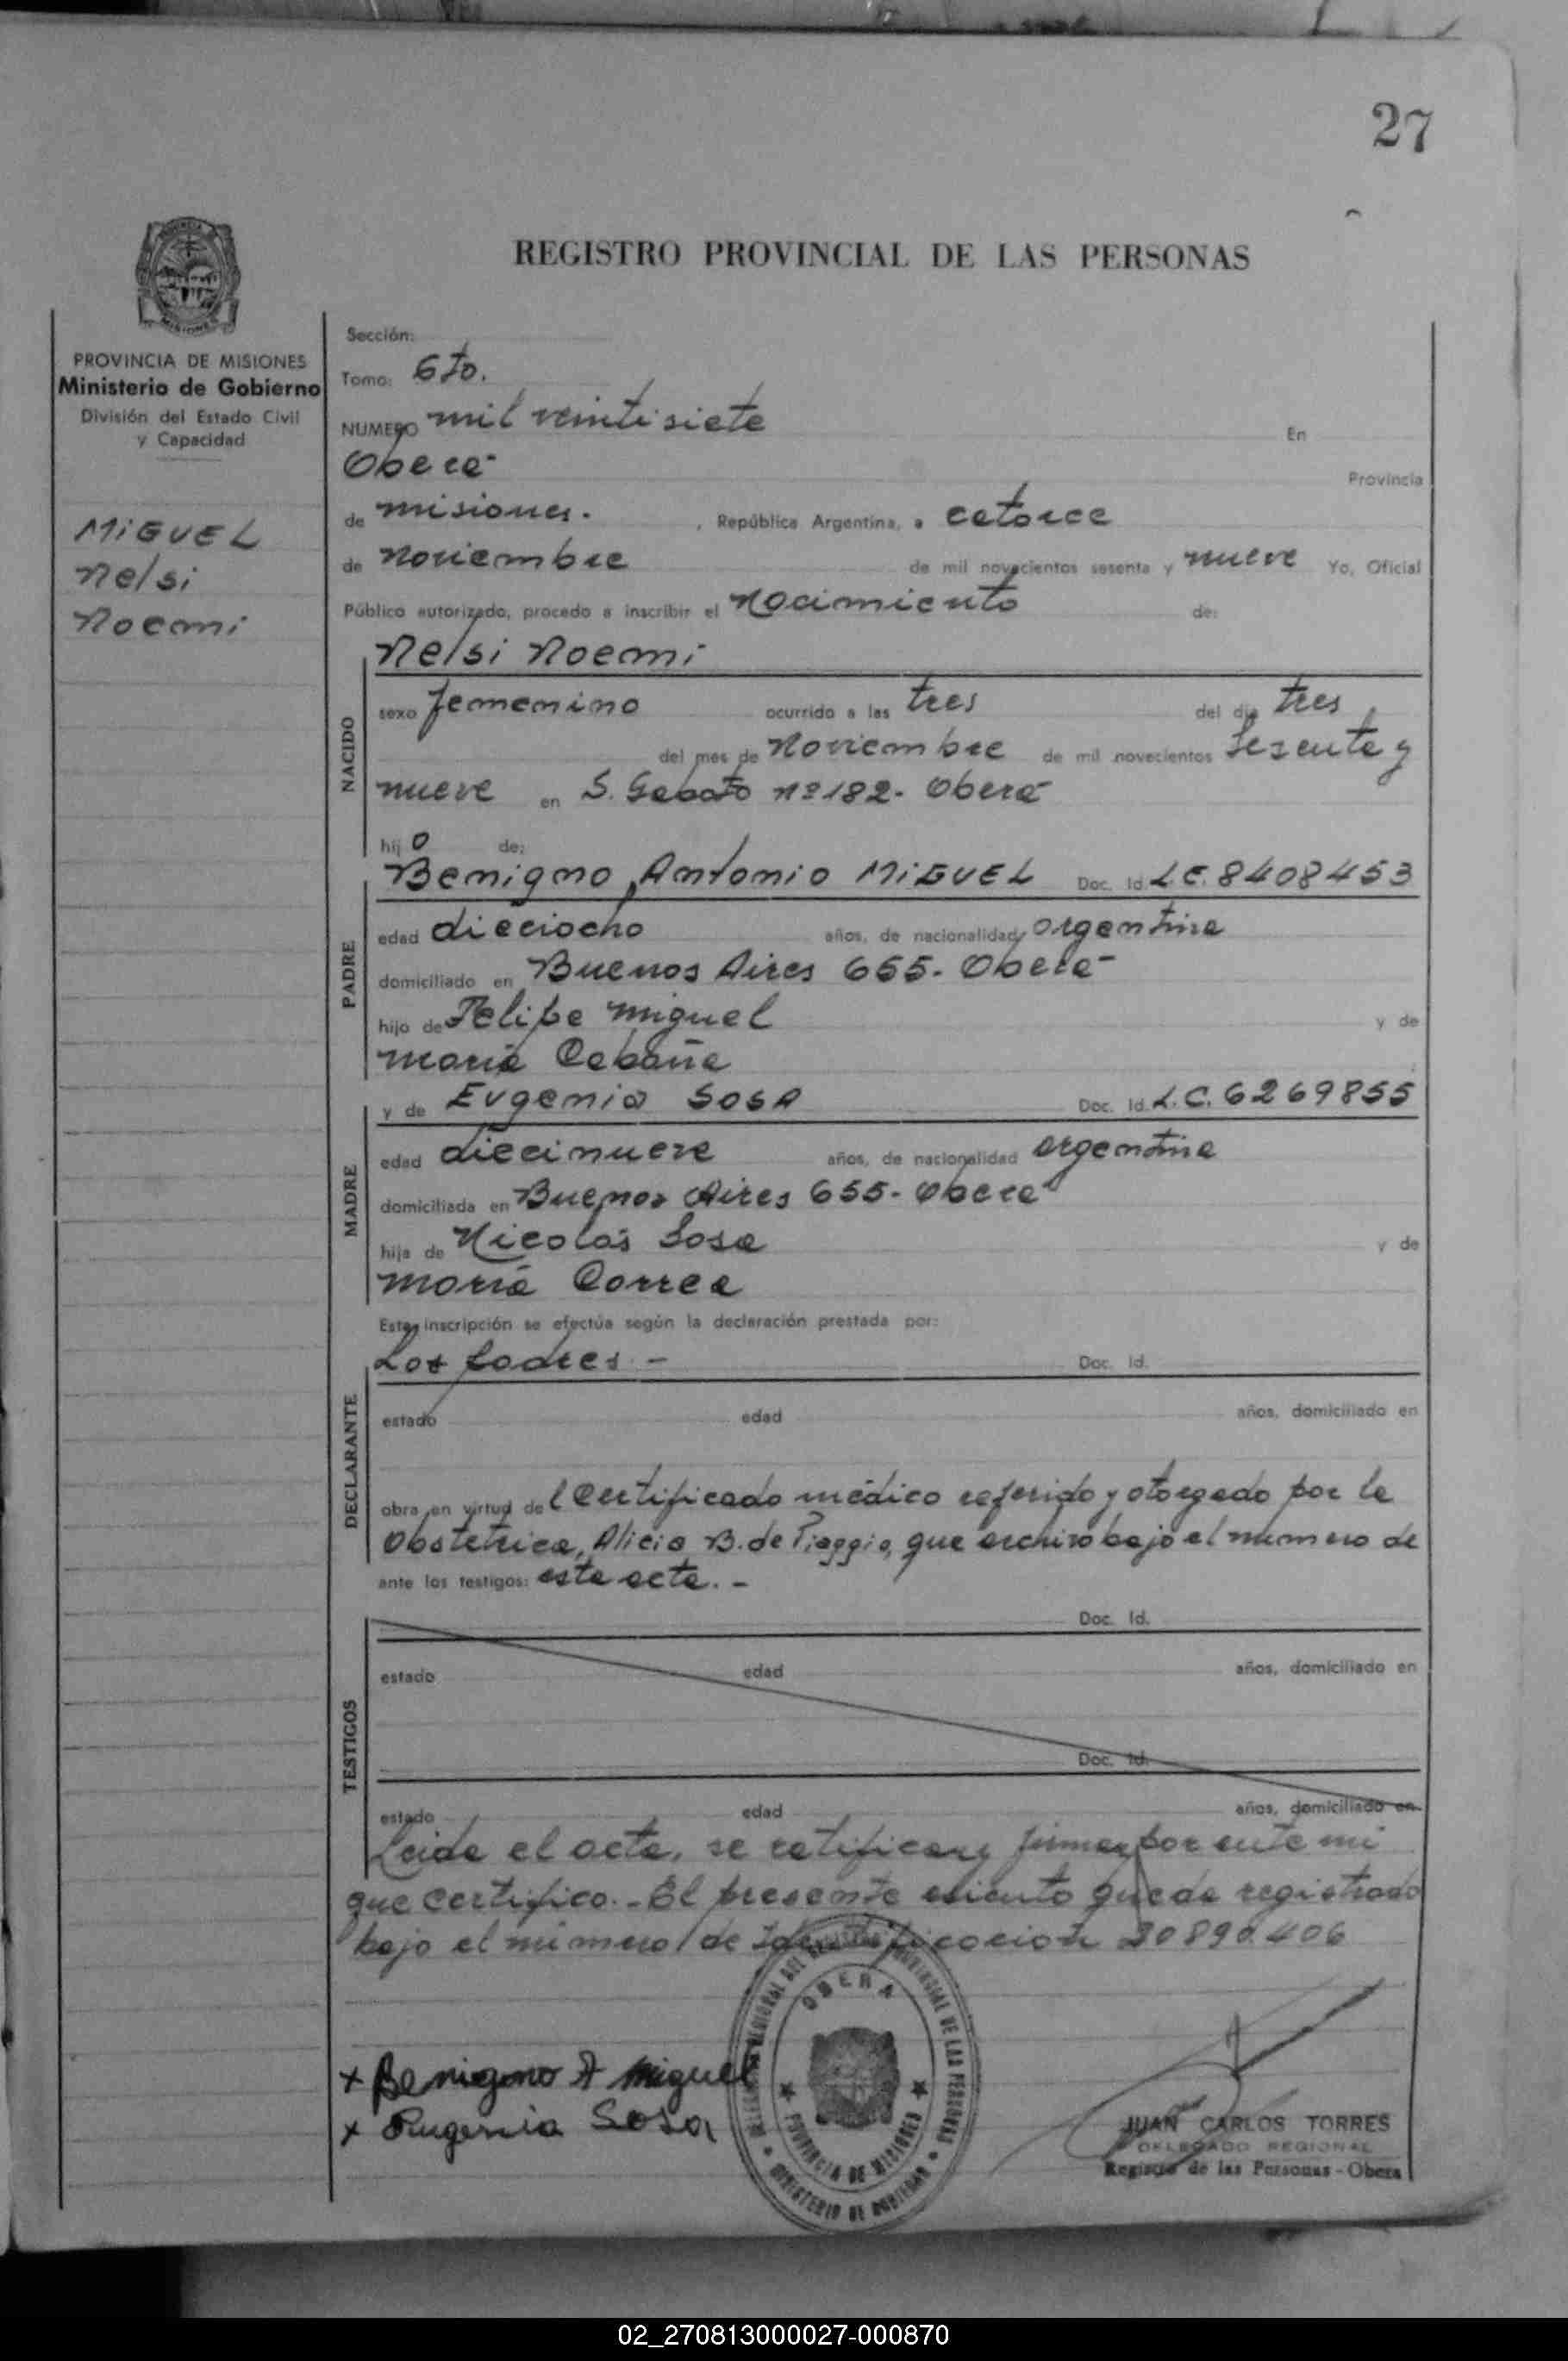 27
REGISTRO PROVINCIAL DE LAS PERSONAS
PROVINCIA DE MISIONES
Ministerio de Gobierno
División del Estado Civil
y Capacidad
MIGUEL
Nelsi
Noemi
Sección:
Tomo: 6to.
NUMERO mil veintisiete En
Oberá
Provincia
de misiones. , República Argentina, a catorce
de noviembre de mil novecientos sesenta y nueve Yo, Oficial
Público autorizado, procedo a inscribir el Nacimiento de:
Nelsi Noemi
NACIDO
sexo femenino ocurrido a las tres del día tres
del mes de Noviembre de mil novecientos sesenta y
nueve en S. Gaboto nº 182- Oberá
hij o de:
Benigno Antonio MIGUEL Doc. Id. L.E. 8408453
PADRE
edad dieciocho años, de nacionalidad argentina
domiciliado en Buenos Aires 655- Oberá
hijo de Felipe Miguel y de
María Cabaña
y de Eugenia SOSA Doc. Id. L.C. 6269855
MADRE
edad diecinueve años, de nacionalidad argentina
domiciliada en Buenos Aires 655- Oberá
hija de Nicolás Sosa y de
María Correa
Esta inscripción se efectúa según la declaración prestada por:
Los padres - Doc. Id.
DECLARANTE
estado edad años, domiciliado en
obra en virtud de l Certificado médico referido y otorgado por la
Obstetrica, Alicia B. de Piaggio, que archivo bajo el numero de
ante los testigos: esta acta. -
Doc. Id.
TESTIGOS
estado edad años, domiciliado en
Doc. Id.
estado edad años, domiciliado en
Leida el acta, se ratifican y firman por ante mi
que certifico.- El presente asiento queda registrado
bajo el número de Identificación 20890.406
DELEGACION REGIONAL DEL REGISTRO PROVINCIAL DE LAS PERSONAS
OBERA
PROVINCIA DE MISIONES
MINISTERIO DE GOBIERNO
x Benigno A Miguel
x Eugenia Sosa
JUAN CARLOS TORRES
DELEGADO REGIONAL
Registro de las Personas - Obera
02_270813000027-000870